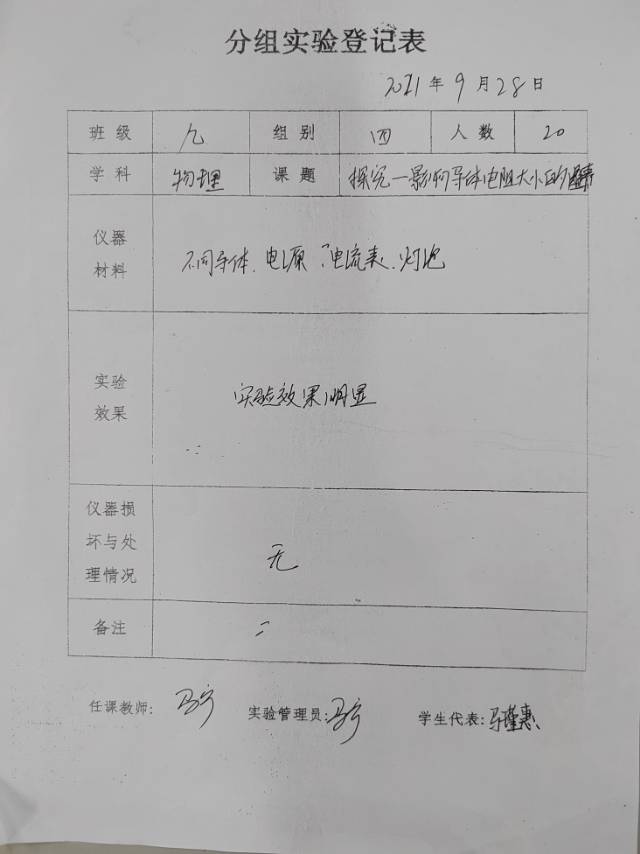 分组实验登记表
2021年9月28日
班级 九 组别 四 人数 20
学科 物理 课题 探究一影响导体电阻大小的因素
仪器
材料
不同导体、电源、电流表、灯泡
实验
效果
实验效果明显
仪器损
坏与处
理情况
无
备注
任课教师: 实验管理员: 学生代表:马瑾惠